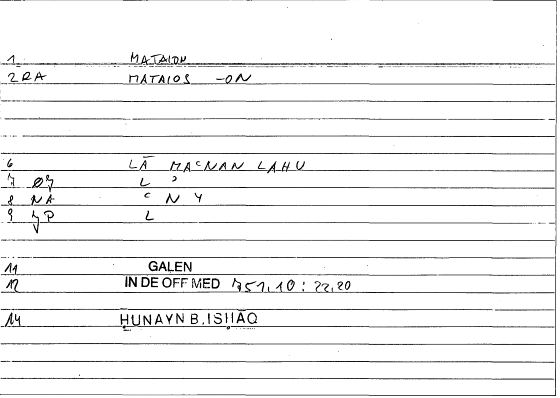 1 MATAION
2 RA MATAIOS -ON
6 LĀ MAᶜNAN LAHU
7 L ʾ
8 NA ᶜ N Y
9 L
11 GALEN
12 IN DE OFF MED 751,10 : 22,20
14 ḤUNAYN B. ISḤĀQ